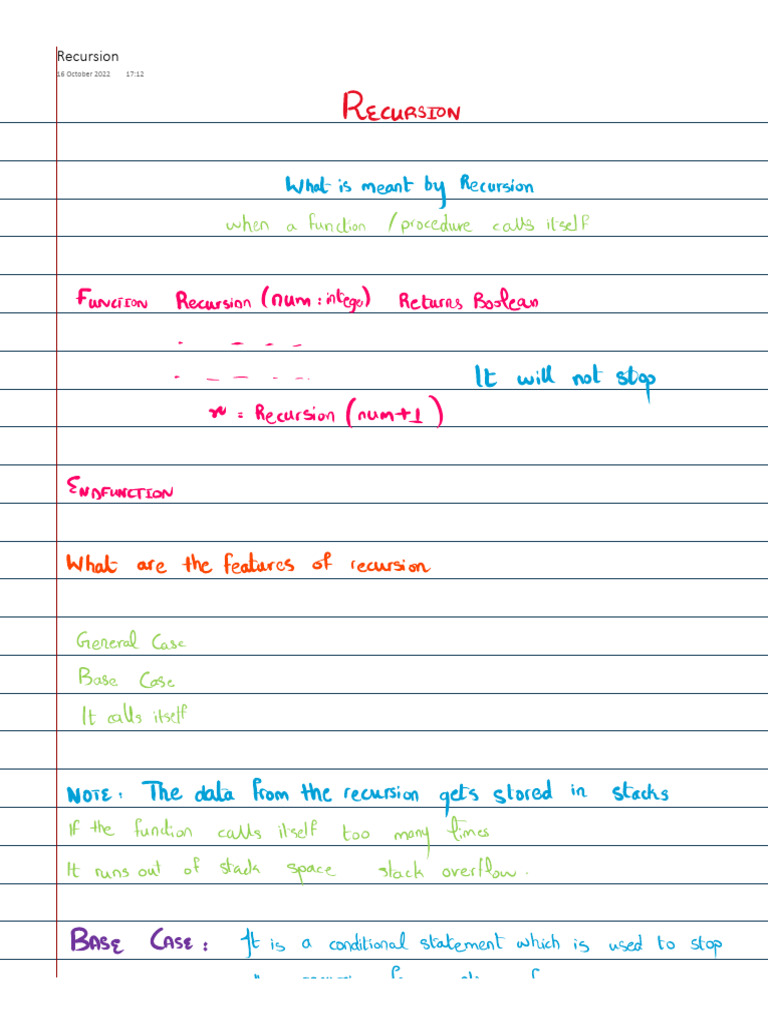 Recursion
16 October 2022 17:12
RECURSION
What is meant by Recursion
when a function / procedure calls itself
FUNCTION Recursion (num : intege) Returns Boolean
It will not stop
= Recursion (num+1)
ENDFUNCTION
What are the features of recursion
General Case
Base Case
It calls itself
NOTE: The data from the recursion gets stored in stacks
If the function calls itself too many times
It runs out of stack space stack overflow.
BASE CASE: It is a conditional statement which is used to stop